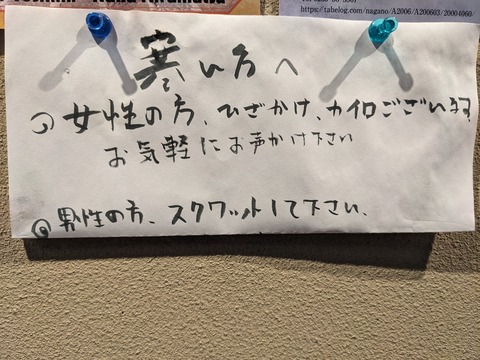 https://tabelog.com/nagano/A2006/A200603/20004060/
寒い方へ
女性の方、ひざかけ、カイロございます
お気軽にお声かけ下さい
男性の方、スクワットして下さい、